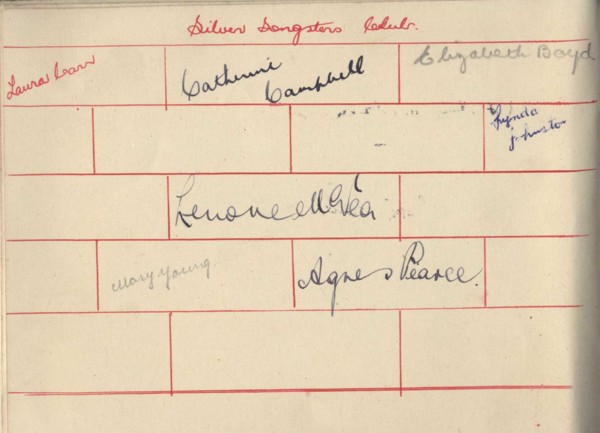 Silver Songsters Club.
Laura Carr
Catherine
Campbell
Elizabeth Boyd
Lynda
Johnston
Lenone McVea
Mary Young
Agnes Pearce.